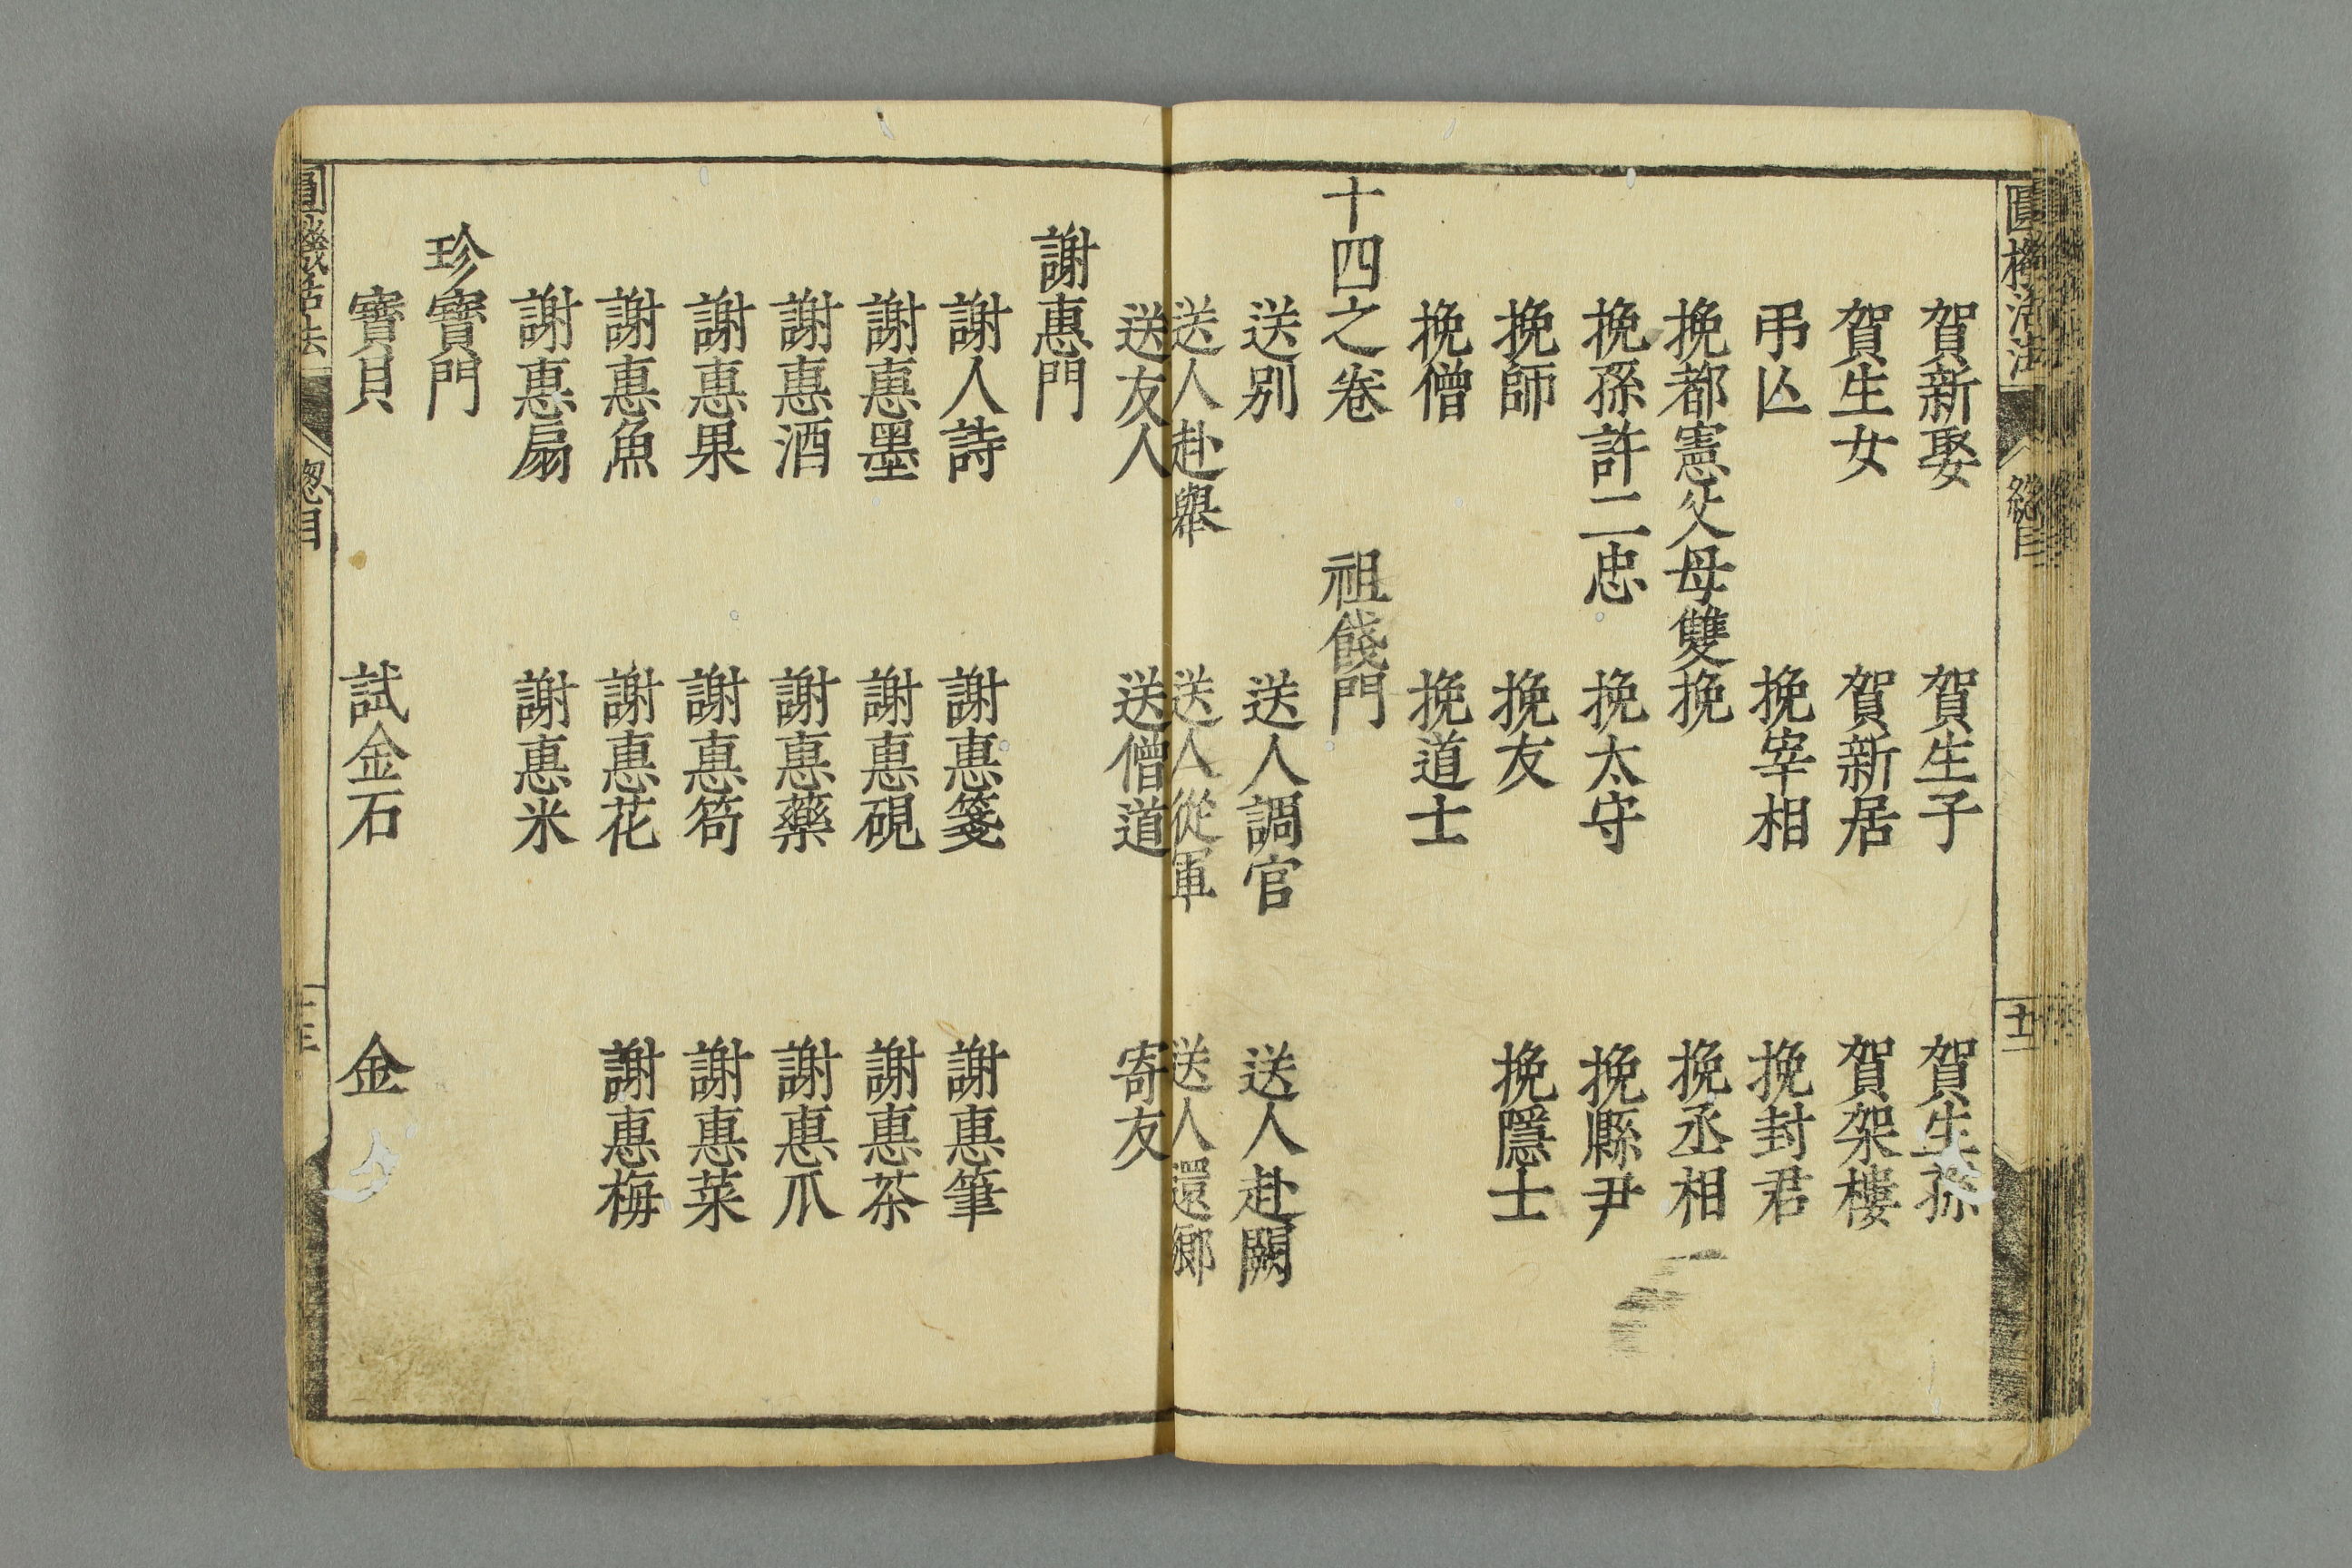 圓機活法 總目 十二
賀新娶 賀生子 賀生孫
賀生女 賀新居 賀架樓
弔亾 挽宰相 挽封君
挽都憲父母雙挽 挽丞相
挽孫許二忠 挽太守 挽縣尹
挽師 挽友 挽隱士
挽僧 挽道士
十四之卷 祖餞門
送別 送人調官 送人赴闕
送人赴舉 送人從軍 送人還鄉
送友人 送僧道 寄友
謝惠門
謝人詩 謝惠箋 謝惠筆
謝惠墨 謝惠硯 謝惠茶
謝惠酒 謝惠藥 謝惠爪
謝惠果 謝惠筍 謝惠菜
謝惠魚 謝惠花 謝惠梅
謝惠扇 謝惠米
珍寶門
寶貝 試金石 金
圓機活法 總目 十三